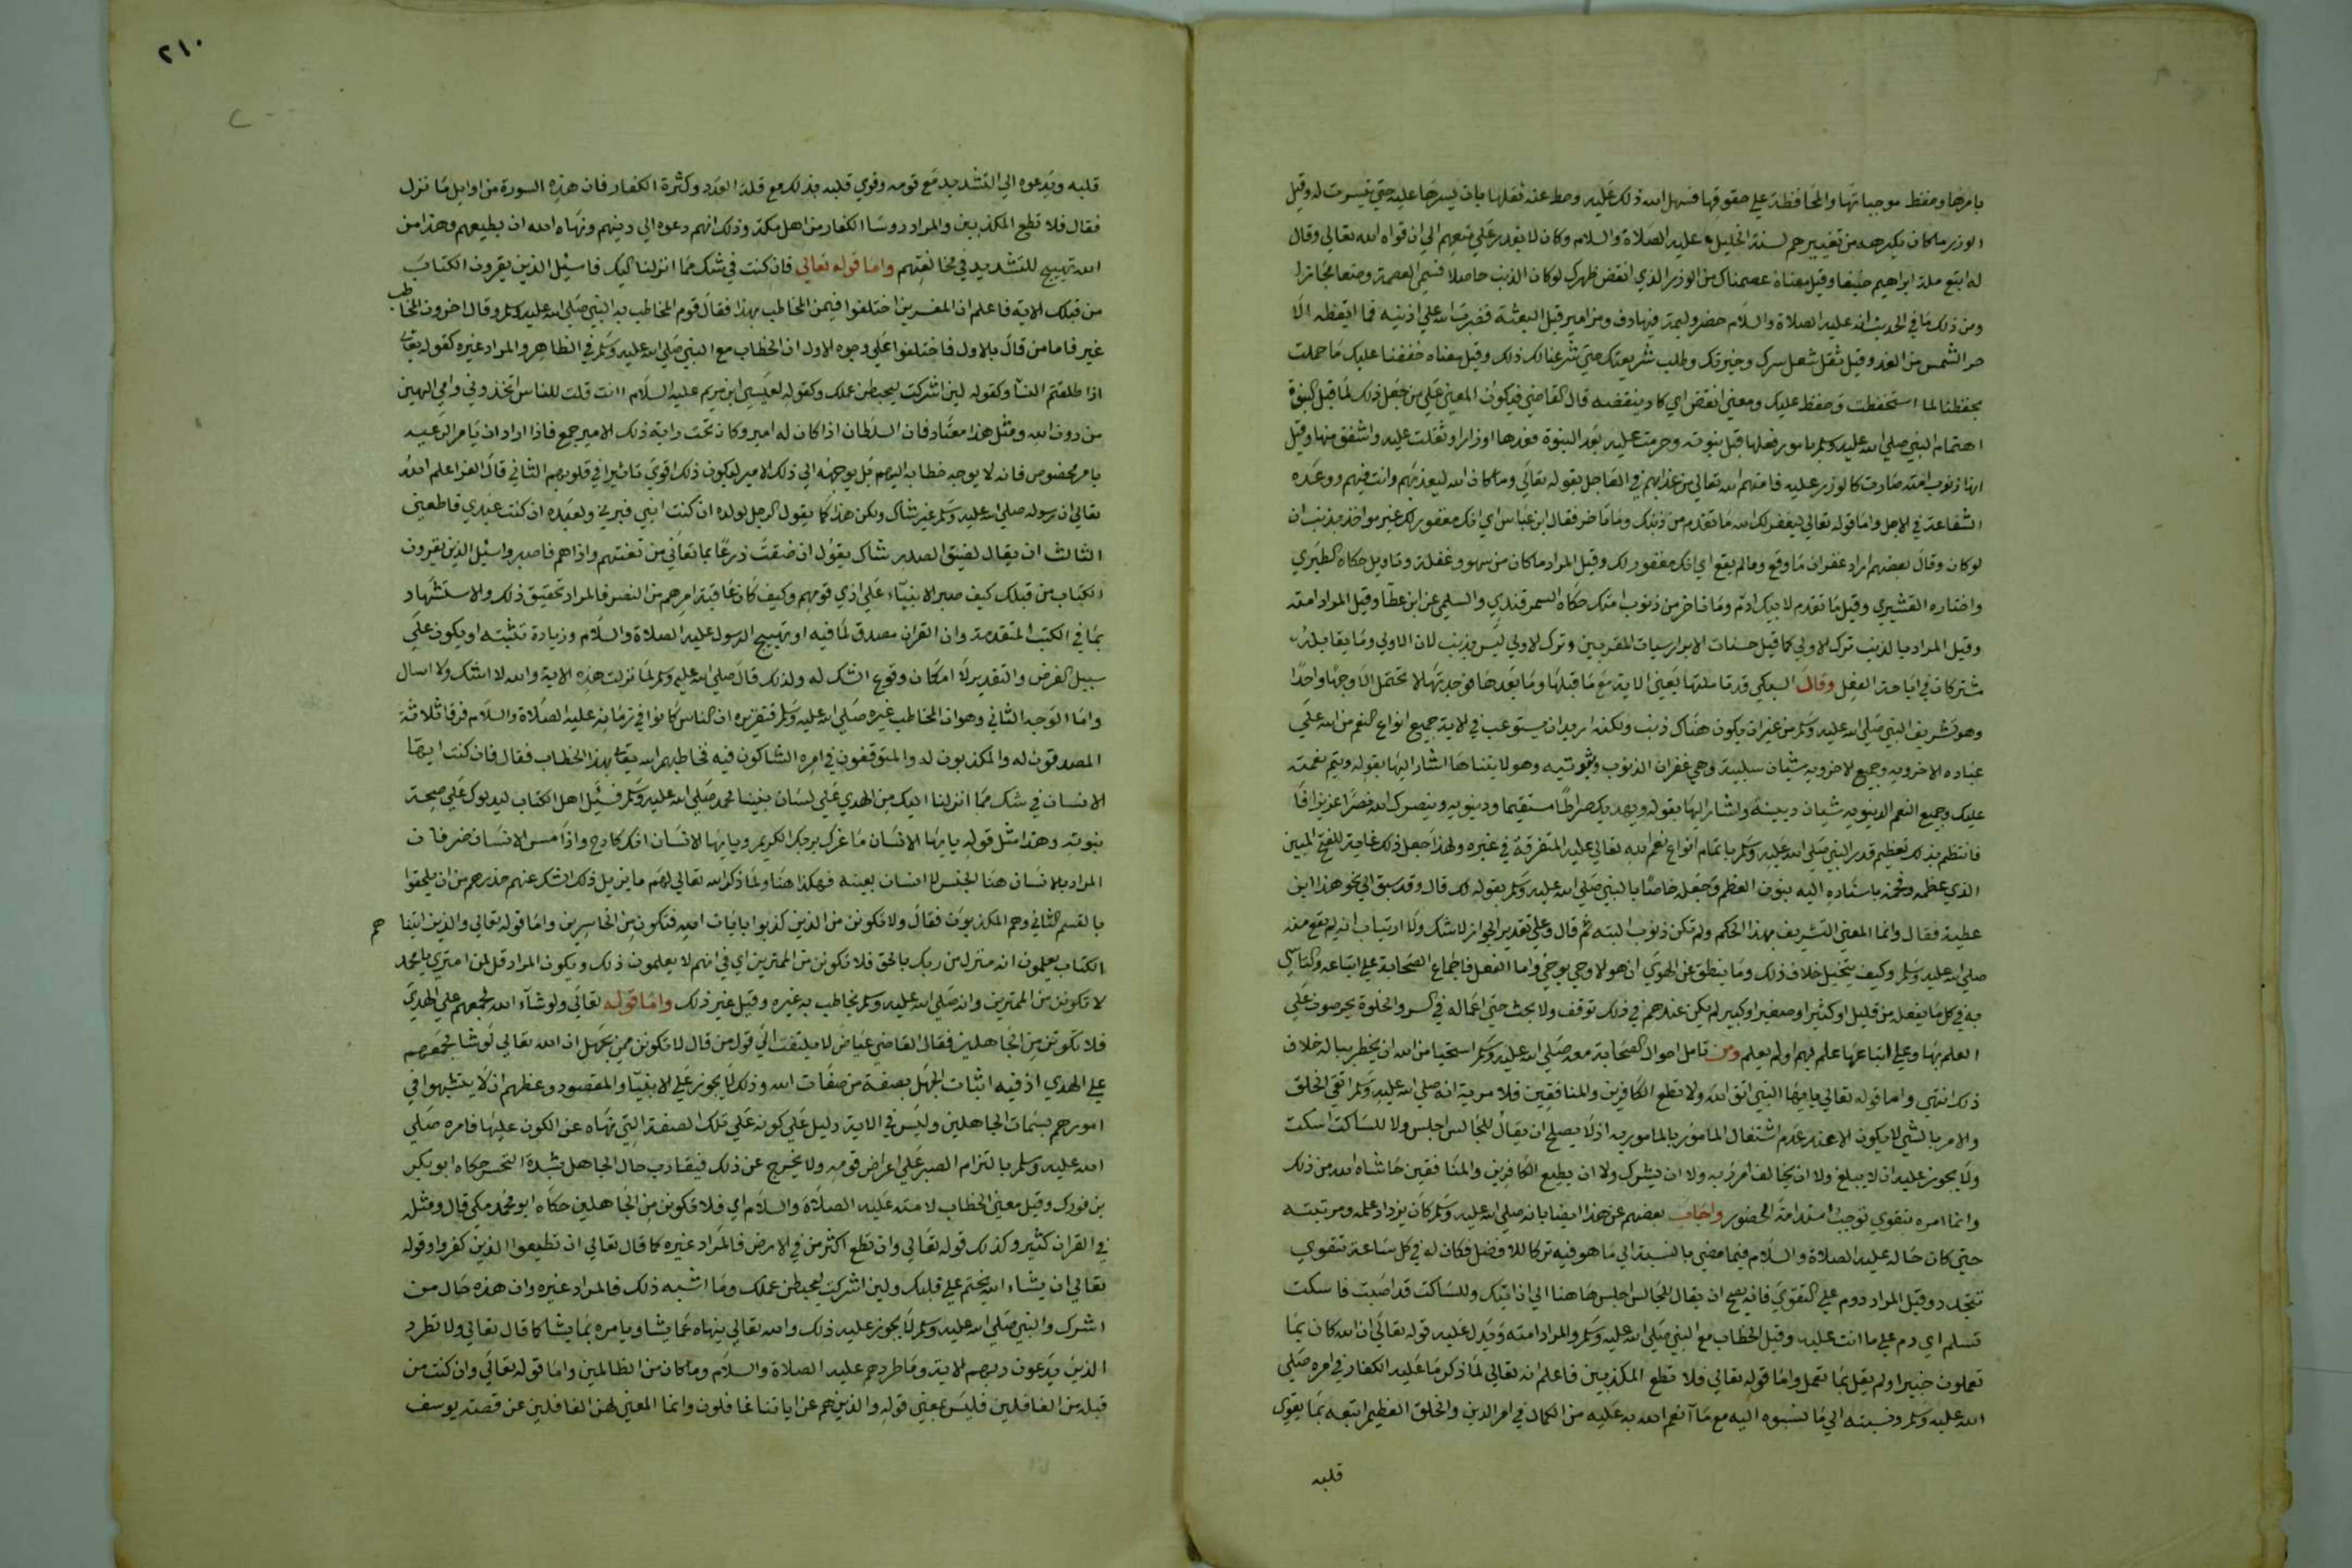 بامرها وحفظ موجباتها والمحافظة على حقوقها فسهل الله ذلك عليه وحط عنه ثقلها بان يسرها عليه حتي تيسرت له وقيل
الوزر ماكان يكرهه من تغييرهم لسنة الخليل عليه الصلاة والسلام وكان لا يقدر علي منعهم الي ان قواه الله تعالي وقال
له اتبع ملة ابراهيم حنيفا وقيل معناه عصمناك من الوزر الذي انقض ظهرك لو كان الذنب حاصلا فسمي العصمة وضعا مجازا
ومن ذلك ما في الحديث انه عليه الصلاة والسلام حضر وليمة فيها دف ومزامير قبل البعثة فضرب الله علي اذنيه فما ايقظه الا
حر الشمس من الغد وقيل ثقل شغل سرك وحيرتك وطلب شريعتك حتي شرعنا لك ذلك وقيل معناه خففنا عليك ما حملت
بحفظنا لما استحفظت وحفظ عليك ومعني انقض اي كاد ينقضه قال القاضي فيكون المعني علي من جعل ذلك لما قبل النبوة
اهتمام النبي صلي الله عليه وسلم بامور فعلها قبل نبوته وحرمت عليه بعد النبوة فعدها اوزارا وثقلت عليه واشفق منها وقيل
انها ذنوب امته صارت كالوزر عليه فامنه الله تعالي من عذابهم في العاجل بقوله تعالي وماكان الله ليعذبهم وانت فيهم ووعده
الشفاعة في الاجل واما قوله تعالي ليغفر لك الله ما تقدم من ذنبك وما تاخر فقال ابن عباس اي انك مغفور لك غير مواخذ بذنب ان
لو كان وقال بعضهم اراد غفران ما وقع ومالم يقع اي انك مغفور لك وقيل المراد ماكان من سهو وغفلة وتاويل حكاه الطبري
واختاره القشيري وقيل ما تقدم لابيك ادم وما تاخر من ذنوب امتك حكاه السمرقندي والسلمي عن ابن عطا وقيل المراد امته
وقيل المراد بالذنب ترك الاولي كما قيل حسنات الابرار سيات المقربين وترك الاولي ليس بذنب لان الاولي وما يقابله
مشتركان في اباحة الفعل وقال السبكي قد تاملتها يعني الاية مع ما قبلها وما بعدها فوجدتها لا تحتمل الا وجها واحدا
وهو تشريف النبي صلي الله عليه وسلم من غير ان يكون هناك ذنب ولكنه اريد ان يستوعب في الاية جميع انواع النعم من الله علي
عباده الاخرويه وجميع الاخرويه شيان سلبية وهي غفران الذنوب وثبوتيه وهو لا يتناها اشار اليها بقوله ويتم نعمته
عليك وجميع النعم الدنيويه شيان دينية واشار اليها بقوله ويهديك صراطا مستقيما ودنيويه وينصرك الله نصرا عزيزا
فانتظم بذلك تعظيم قدر النبي صلي الله عليه وسلم باتمام انواع نعم الله تعالي عليه المتفرقة في غيره ولهذا جعل ذلك غاية للفتح المبين
الذي عظمه وفخمه باسناده اليه بنون العظمة وجعله خاصا بالنبي صلي الله عليه وسلم بقوله لك قال وقد سبق الي نحو هذا ابن
عطية فقال وانما المعني التشريف بهذا الحكم ولم تكن ذنوب البته ثم قال وعلي تقدير الجواز لا شك ولا ارتياب انه لم يقع منه
صلي الله عليه وسلم وكيف يتخيل خلاف ذلك وما ينطق عن الهوي ان هو الا وحي يوحي واما الفعل فاجماع الصحابة علي اتباعه والتاسي
به في كل ما يفعله من قليل او كثير او صغير او كبير لم يكن عندهم في ذلك توقف ولا بحث حتي اعماله في السر والخلوة يحرصون علي
العلم بها وعلي اتباعها علم بهم او لم يعلم ومن تامل احوال الصحابة معه صلي الله عليه وسلم استحيا من الله ان يخطر بباله خلاف
ذلك انتهي واما قوله تعالي يا ايها النبي اتق الله ولا تطع الكافرين والمنافقين فلا مرية انه صلي الله عليه وسلم اتقي الخلق
والامر بالشي لا يكون الا عند عدم اشتغال المامور بالمامور به اذ لا يصلح ان يقال للجالس اجلس ولا للساكت اسكت
ولا يجوز عليه ان لا يبلغ ولا ان يخالف امر ربه ولا ان يشرك ولا ان يطيع الكافرين والمنافقين حاشاه الله من ذلك
وانما امره بتقوي توجب استدامة الحضور واجاب بعضهم عن هذا ايضا بانه صلي الله عليه وسلم كان يزداد علمه ومرتبته
حتي كان حاله عليه الصلاة والسلام فيما مضي بالنسبة الي ما هو فيه تركا للافضل فكان له في كل ساعة تقوي
تتجدد وقيل المراد دوم علي التقوي فانه يصح ان يقال للجالس اجلس هاهنا الي ان اتيك وللساكت قد اصبت فاسكت
تسلم اي دم علي ما انت عليه وقيل الخطاب مع النبي صلي الله عليه وسلم والمراد امته ويدل عليه قوله تعالي ان الله كان بما
تعملون خبيرا ولم يقل بما تعمل واما قوله تعالي فلا تطع المكذبين فاعلم انه تعالي لما ذكر ما عليه الكفار في امره صلي
الله عليه وسلم ونسبته الي ما نسبوه اليه مع ما انعم الله به عليه من الكمال في امر الدين والخلق العظيم اتبعه بما يقوي
قلبه
٢١٠
قلبه ويدعوه الي التشديد مع قومه وقوي قلبه بذلك مع قلة العدد وكثرة الكفار فان هذه السورة من اوايل ما نزل
فقال فلا تطع المكذبين والمراد روسا الكفار من اهل مكة وذلك انهم دعوه الي دينهم ونهاه الله ان يطيعهم وهذا من
الله تهييج للتشديد في مخالفتهم واما قوله تعالي فان كنت في شك مما انزلنا اليك فاسئل الذين يقرون الكتاب
من قبلك الاية فاعلم ان المفسرين اختلفوا فيمن المخاطب بهذا فقال قوم المخاطب به النبي صلي الله عليه وسلم وقال اخرون المخاطب
غيره فاما من قال بالاول فاختلفوا علي وجوه الاول ان الخطاب مع النبي صلي الله عليه وسلم في الظاهر والمراد غيره كقوله تعالي
اذا طلقتم النسا وكقوله لين اشركت ليحبطن عملك وكقوله لعيسي ابن مريم عليه السلام اانت قلت للناس اتخذوني وامي الهين
من دون الله ومثل هذا معتاد فان السلطان اذا كان له امير وكان تحت راية ذلك الامير جمع فاذا اراد ان يامر الرعيه
بامر مخصوص فانه لا يوجه خطابه اليهم بل يوجهه الي ذلك الامير ليكون ذلك اقوي تاثيرا في قلوبهم الثاني قال الفرا علم الله
تعالي ان رسوله صلي الله عليه وسلم غير شاك ولكن هذا كما يقول الرجل لولده ان كنت ابني فبرني ولعبده ان كنت عبدي فاطعني
الثالث ان يقال لضيق الصدر شاك يقول ان ضقت ذرعا بما تعاني من تعنتهم واذاهم فاصبر واسئل الذين يقرون
الكتاب من قبلك كيف صبر الانبياء علي اذي قومهم وكيف كان عاقبة امرهم من النصر فالمراد تحقيق ذلك والاستشهاد
بما في الكتب المتقدمة وان القران مصدق لما فيه او تهييج الرسول عليه الصلاة والسلام وزيادة تثبته او يكون علي
سبيل الفرض والتقدير لا امكان وقوع الشك له ولذلك قال صلي الله عليه وسلم لما نزلت هذه الاية والله لا اشك ولا اسال
واما الوجه الثاني وهو ان المخاطب غيره صلي الله عليه وسلم فتقريره ان الناس كانوا في زمانه عليه الصلاة والسلام فرقا ثلاثة
المصدقون له والمكذبون له والمتوقفون في امره الشاكون فيه فخاطبهم الله تعالي بهذا الخطاب فقال فان كنت ايها
الانسان في شك مما انزلنا اليك من الهدي علي لسان نبينا محمد صلي الله عليه وسلم فسئل اهل الكتاب ليدلوك علي صحة
نبوته وهذا مثل قوله يا يها الانسان ما غرك بربك الكريم ويا يها الانسان انك كادح واذا مس الانسان ضر فان
المراد بالانسان هنا الجنس لا انسان بعينه فهكذا هنا ولما ذكر الله تعالي لهم ما يزيل ذلك الشك عنهم حذرهم من ان يلحقوا
بالقسم الثاني وهم المكذبون فقال ولا تكونن من الذين كذبوا بايات الله فتكون من الخاسرين واما قوله تعالي والذين اتينا هم
الكتاب يعلمون انه منزل من ربك بالحق فلا تكونن من الممترين اي في انهم لا يعلمون ذلك ويكون المراد قل لمن امتري يا محمد
لا تكونن من الممترين وانه صلي الله عليه وسلم يخاطب به غيره وقيل غير ذلك واما قوله تعالي ولو شاء الله لجمعهم علي الهدي
فلا تكونن من الجاهلين فقال القاضي عياض لا يلتفت الي قول من قال لا تكونن ممن يجهل ان الله تعالي لو شا لجمعهم
علي الهدي اذ فيه اثبات الجهل بصفة من صفات الله وذلك لا يجوز علي الانبيا والمقصود وعظهم ان لا يتشبهوا في
امورهم بسمات الجاهلين وليس في الاية دليل علي كونه علي تلك الصفة التي نهاه عن الكون عليها فامره صلي
الله عليه وسلم بالتزام الصبر علي اعراض قومه ولا يخرج عن ذلك فيقارب حال الجاهل بشدة التحسر حكاه ابو بكر
بن فورك وقيل معني الخطاب لامته عليه الصلاة والسلام اي فلا تكونن من الجاهلين حكاه ابو محمد مكي قال ومثله
في القران كثير وكذلك قوله تعالي وان تطع اكثر من في الارض فالمراد غيره كما قال تعالي ان تطيعوا الذين كفروا وقوله
تعالي ان يشاء الله يختم علي قلبك ولين اشركت ليحبطن عملك وما اشبه ذلك فالمراد غيره وان هذه حال من
اشرك والنبي صلي الله عليه وسلم لا يجوز عليه ذلك والله تعالي ينهاه عما يشا ويامره بما يشا كما قال تعالي ولا تطرد
الذين يدعون ربهم الاية وما طردهم عليه الصلاة والسلام وما كان من الظالمين واما قوله تعالي وان كنت من
قبله من الغافلين فليس بمعني قوله والذين هم عن اياتنا غافلون وانما المعني لمن الغافلين عن قصة يوسف